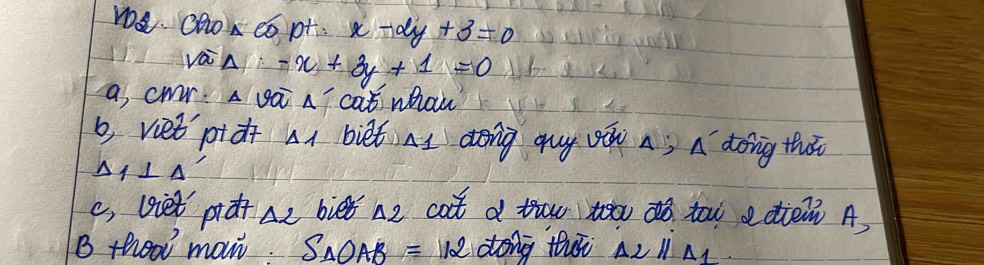 VD2. Cho Δ có pt: x - 2y + 3 = 0
và Δ': -x + 3y + 1 = 0
a, cmr: Δ và Δ' cắt nhau
b, viết ptđt Δ1 biết Δ1 đồng quy với Δ; Δ' đồng thời
Δ1 ⊥ Δ'
c, viết ptđt Δ2 biết Δ2 cắt 2 trục tọa độ tại 2 điểm A,
B thoả mãn: SΔOAB = 12 đồng thời Δ2 // Δ1.